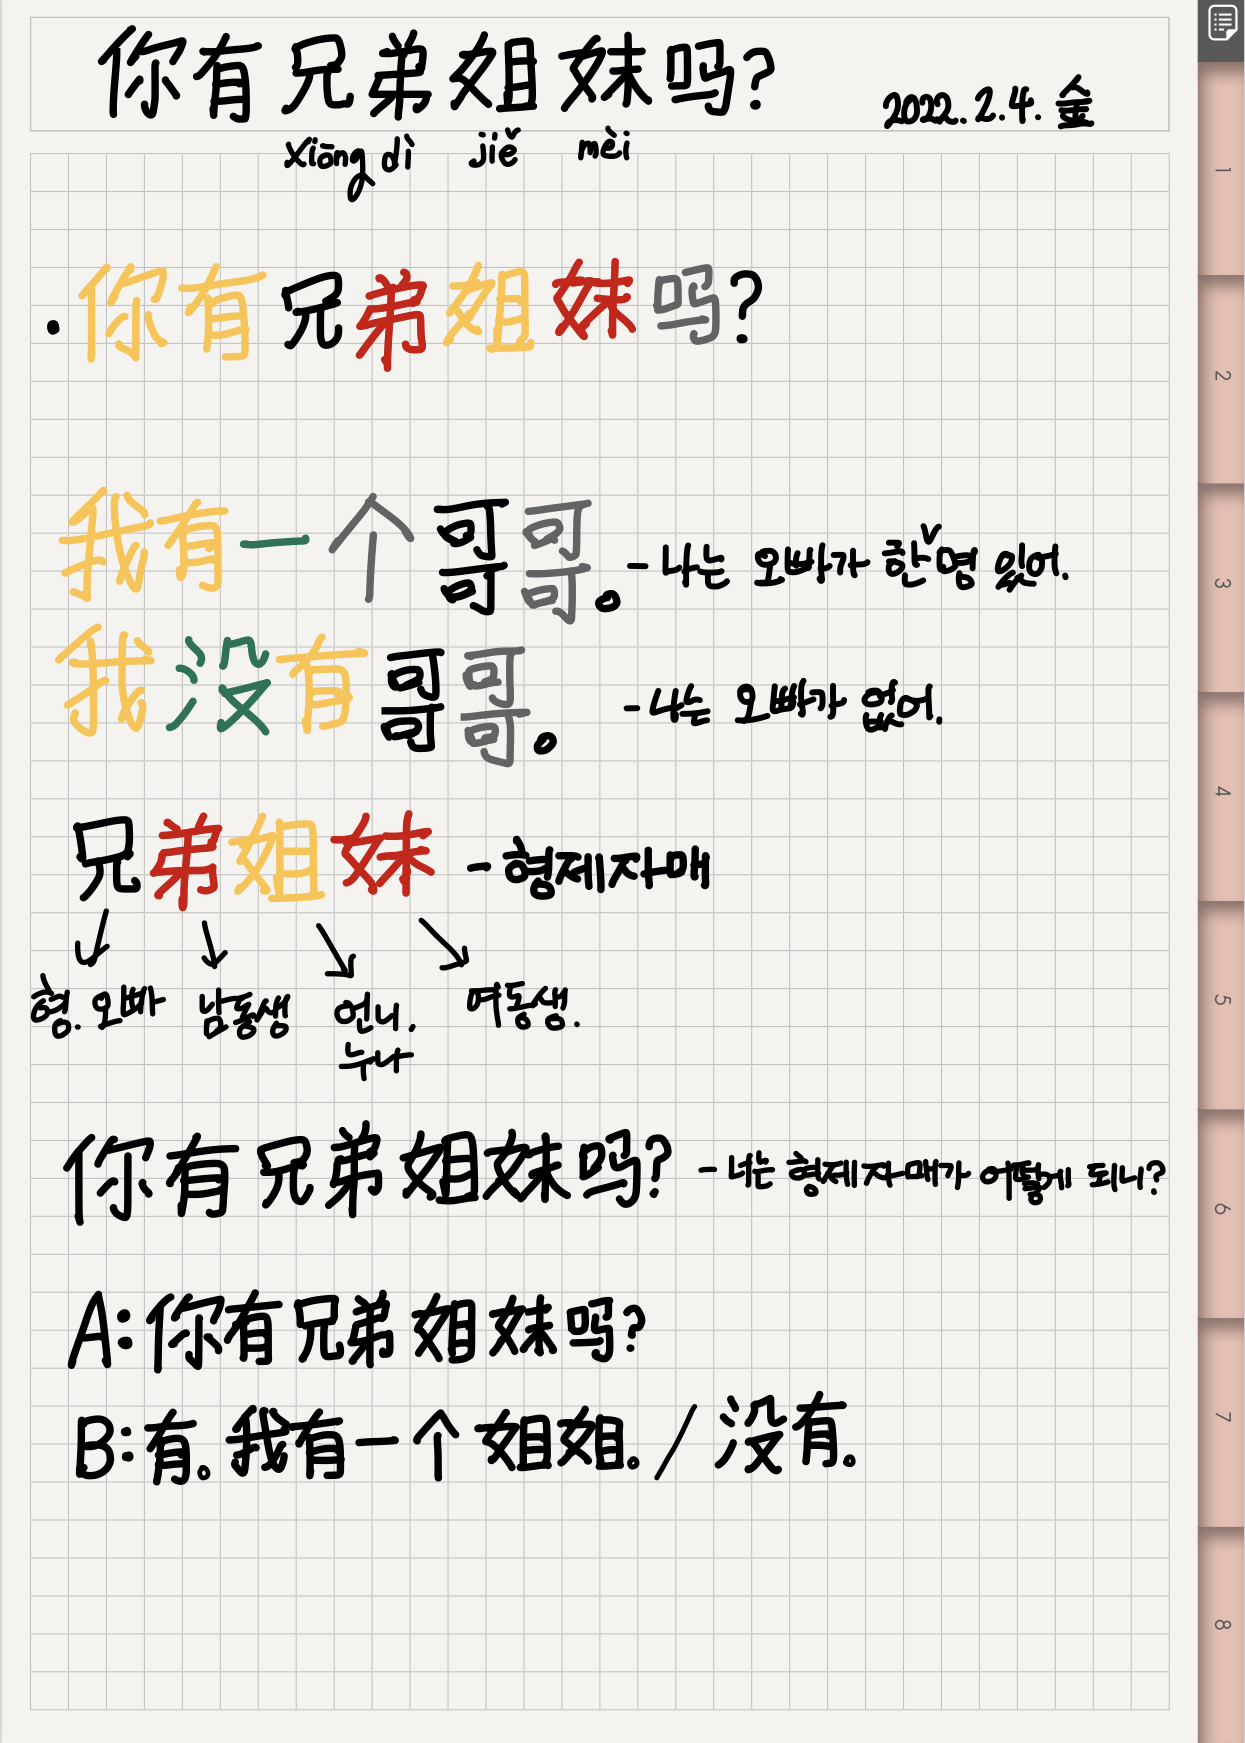 你有兄弟姐妹吗?
2022.2.4.金
xiōng dì jiě mèi
·你有兄弟姐妹吗?
我有一个哥哥。 - 나는 오빠가 한명 있어.
我没有哥哥。 - 나는 오빠가 없어.
兄弟姐妹 - 형제자매
형.오빠 남동생 언니, 여동생.
누나
你有兄弟姐妹吗? - 너는 형제자매가 어떻게 되니?
A:你有兄弟姐妹吗?
B:有。我有一个姐姐。/没有。
1
2
3
4
5
6
7
8